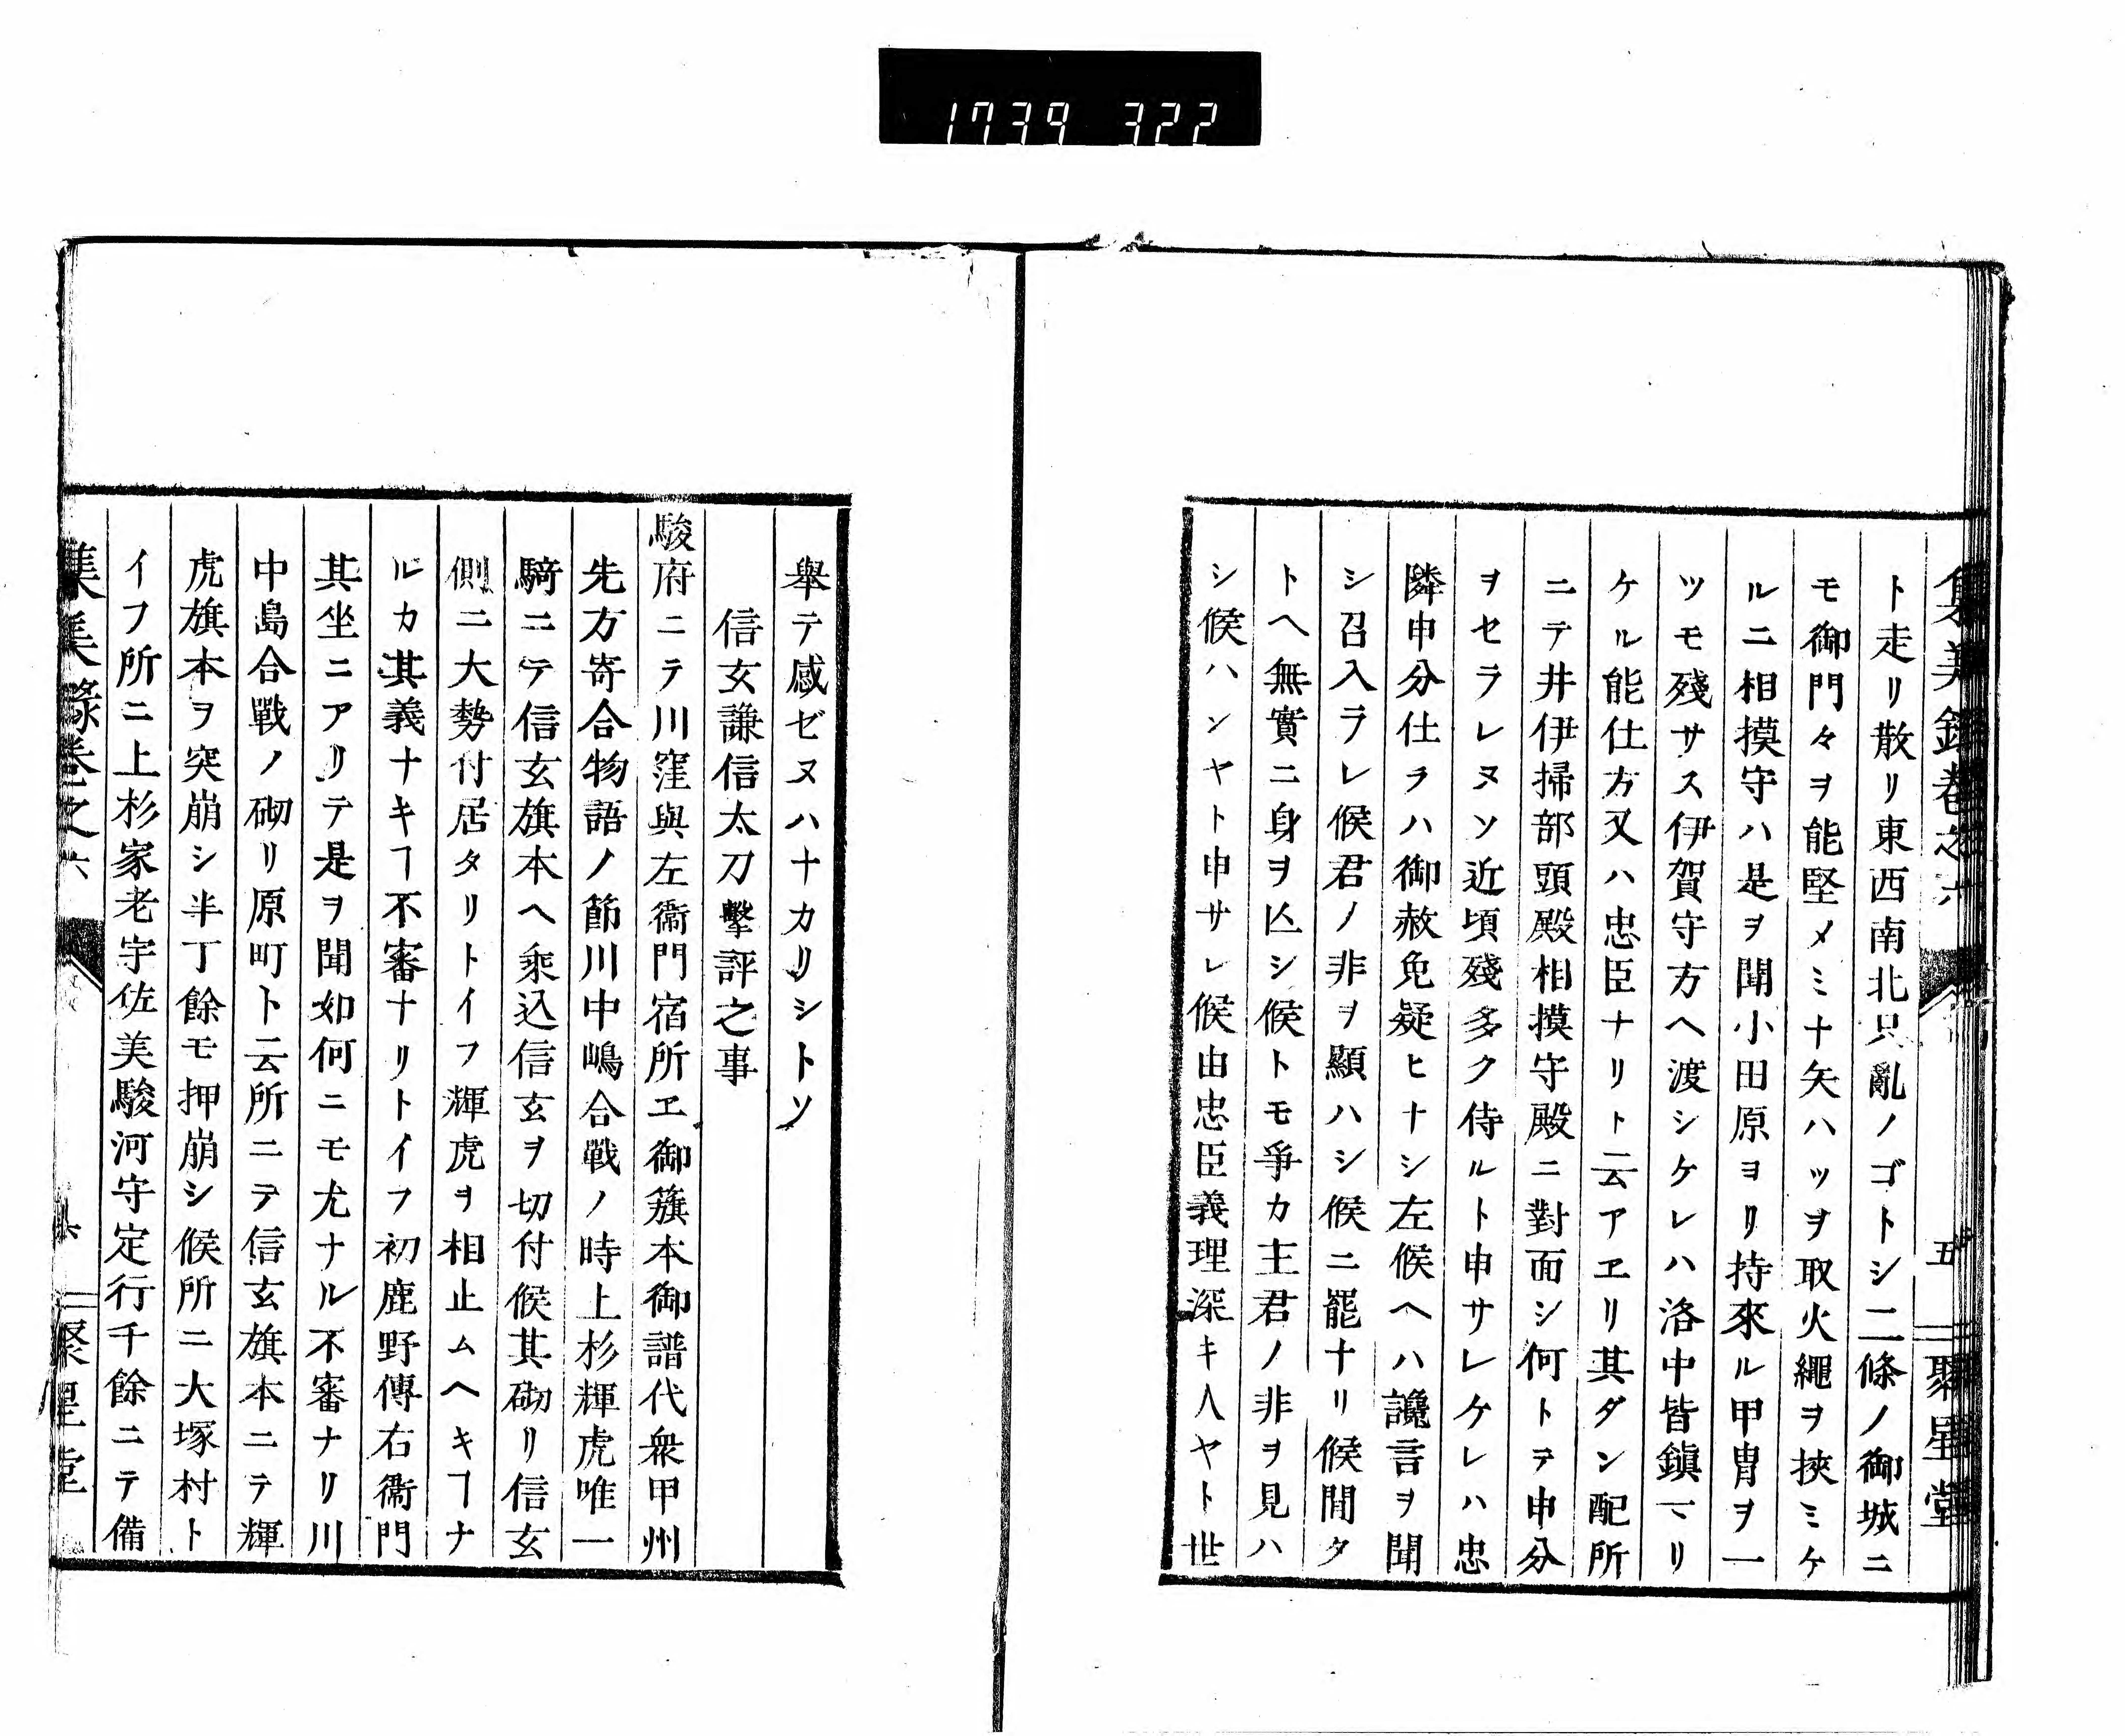 1739 322
集美録巻之六
五
聚星堂
ト走リ散リ東西南北只亂ノゴトシ二條ノ御城ニ
モ御門々ヲ能堅メミナ矢ハッヲ取火繩ヲ挾ミケ
ルニ相摸守ハ是ヲ聞小田原ヨリ持來ル甲冑ヲ一
ツモ殘サス伊賀守方ヘ渡シケレハ洛中皆鎭マリ
ケル能仕方又ハ忠臣ナリト云アエリ其ダン配所
ニテ井伊掃部頭殿相摸守殿ニ對面シ何トテ申分
ヲセラレヌソ近頃殘多ク侍ルト申サレケレハ忠
隣申分仕ラハ御赦免疑ヒナシ左候ヘハ讒言ヲ聞
シ召入ラレ候君ノ非ヲ顯ハシ候ニ罷ナリ候間タ
トヘ無實ニ身ヲ亾シ候トモ爭カ主君ノ非ヲ見ハ
シ候ハンヤト申サレ候由忠臣義理深キ人ヤト世
舉テ感ゼヌハナカリシトソ
信玄謙信太刀擊評之事
駿府ニテ川窪與左衞門宿所エ御籏本御譜代衆甲州
先方寄合物語ノ節川中嶋合戰ノ時上杉輝虎唯一
騎ニテ信玄旗本ヘ乘込信玄ヲ切付候其砌リ信玄
側ニ大勢付居タリトイフ輝虎ヲ相止ムヘキヿナ
ルカ其義ナキヿ不審ナリトイフ初鹿野傳右衞門
其坐ニアリテ是ヲ聞如何ニモ尤ナル不審ナリ川
中島合戰ノ砌リ原町ト云所ニテ信玄旗本ニテ輝
虎旗本ヲ突崩シ半丁餘モ押崩シ候所ニ大塚村ト
イフ所ニ上杉家老宇佐美駿河守定行千餘ニテ備
集美錄巻之六
聚星堂